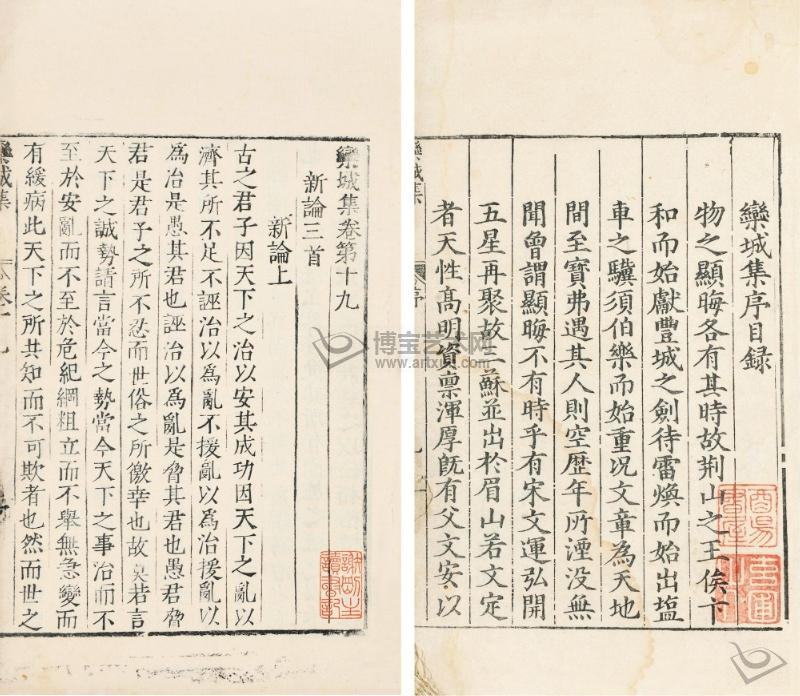 欒城集序目録
物之顯晦各有其時故荆山之玉俟卞
和而始獻豐城之劍待雷煥而始出塩
車之驥須伯樂而始重况文章為天地
間至寶弗遇其人則空歴年所湮没無
聞曾謂顯晦不有時乎有宋文運弘開
五星再聚故二蘇並出於眉山若文定
者天性髙明資禀渾厚旣有父文安以
欒城集
序
欒城集卷第十九
新論三首
新論上
古之君子因天下之治以安其成功因天下之亂以
濟其所不足不誣治以為亂不援亂以為治援亂以
為治是愚其君也誣治以為亂是脅其君也愚君脅
君是君子之所不忍而世俗之所徼幸也故莫若言
天下之誠勢請言當今之勢當今天下之事治而不
至於安亂而不至於危紀綱粗立而不舉無急變而
有緩病此天下之所共知而不可欺者也然而世之
欒城集
卷十九
博宝艺术网
www.artxun.com